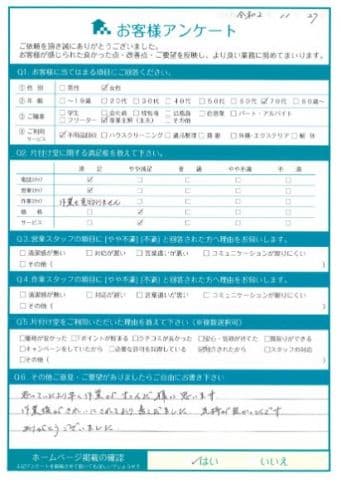 令和2 11 27
お客様アンケート
ご依頼を頂き誠にありがとうございました。
お客様が感じられた良かった点・改善点・ご要望を反映し、より良い業務に努めてまいります。
Q1. お客様に当てはまる項目にご回答ください。
①性 別 □男性 ☑女性
②年 齢 □～19歳 □20代 □30代 □40代 □50代 □60代 ☑70代 □80歳～
③ご職業 □学生 □会社員 □公務員 □自営業 □パート・アルバイト
□フリーター ☑専業主婦(主夫) □その他
④ご利用サービス ☑不用品回収 □ハウスクリーニング □遺品整理 □買取 □外構・エクステリア □解体
Q2. 片付け堂に関する満足度を教えて下さい。
満足 やや満足 普通 やや不満 不満
電話スタッフ
営業スタッフ
作業スタッフ 作業を見ておりません
価 格
サービス
Q3. 営業スタッフの項目に[やや不満][不満]と回答された方へ理由をお伺いします。
□清潔感が無い □対応が悪い □言葉遣いが悪い □コミュニケーションが取りにくい
□その他( )
Q4. 作業スタッフの項目に[やや不満][不満]と回答された方へ理由をお伺いします。
□清潔感が無い □対応が悪い □言葉遣いが悪い □コミュニケーションが取りにくい
□その他( )
Q5. 片付け堂をご利用いただいた理由を教えて下さい(※複数選択可)
□価格が安かった □Tポイントが貯まる □クチコミが良かった □安心・信頼が持てた □買取りができる
□キャンペーンをしていたから □必要な許可を取得している ☑紹介されたから □スタッフの対応
□その他( )
Q6. その他ご意見・ご要望がありましたらご自由にお書き下さい
思っていたより早く作業がすんだ様に思います
作業後がきれいにされており
ありがとうございました
ホームページ掲載の確認
はい いいえ